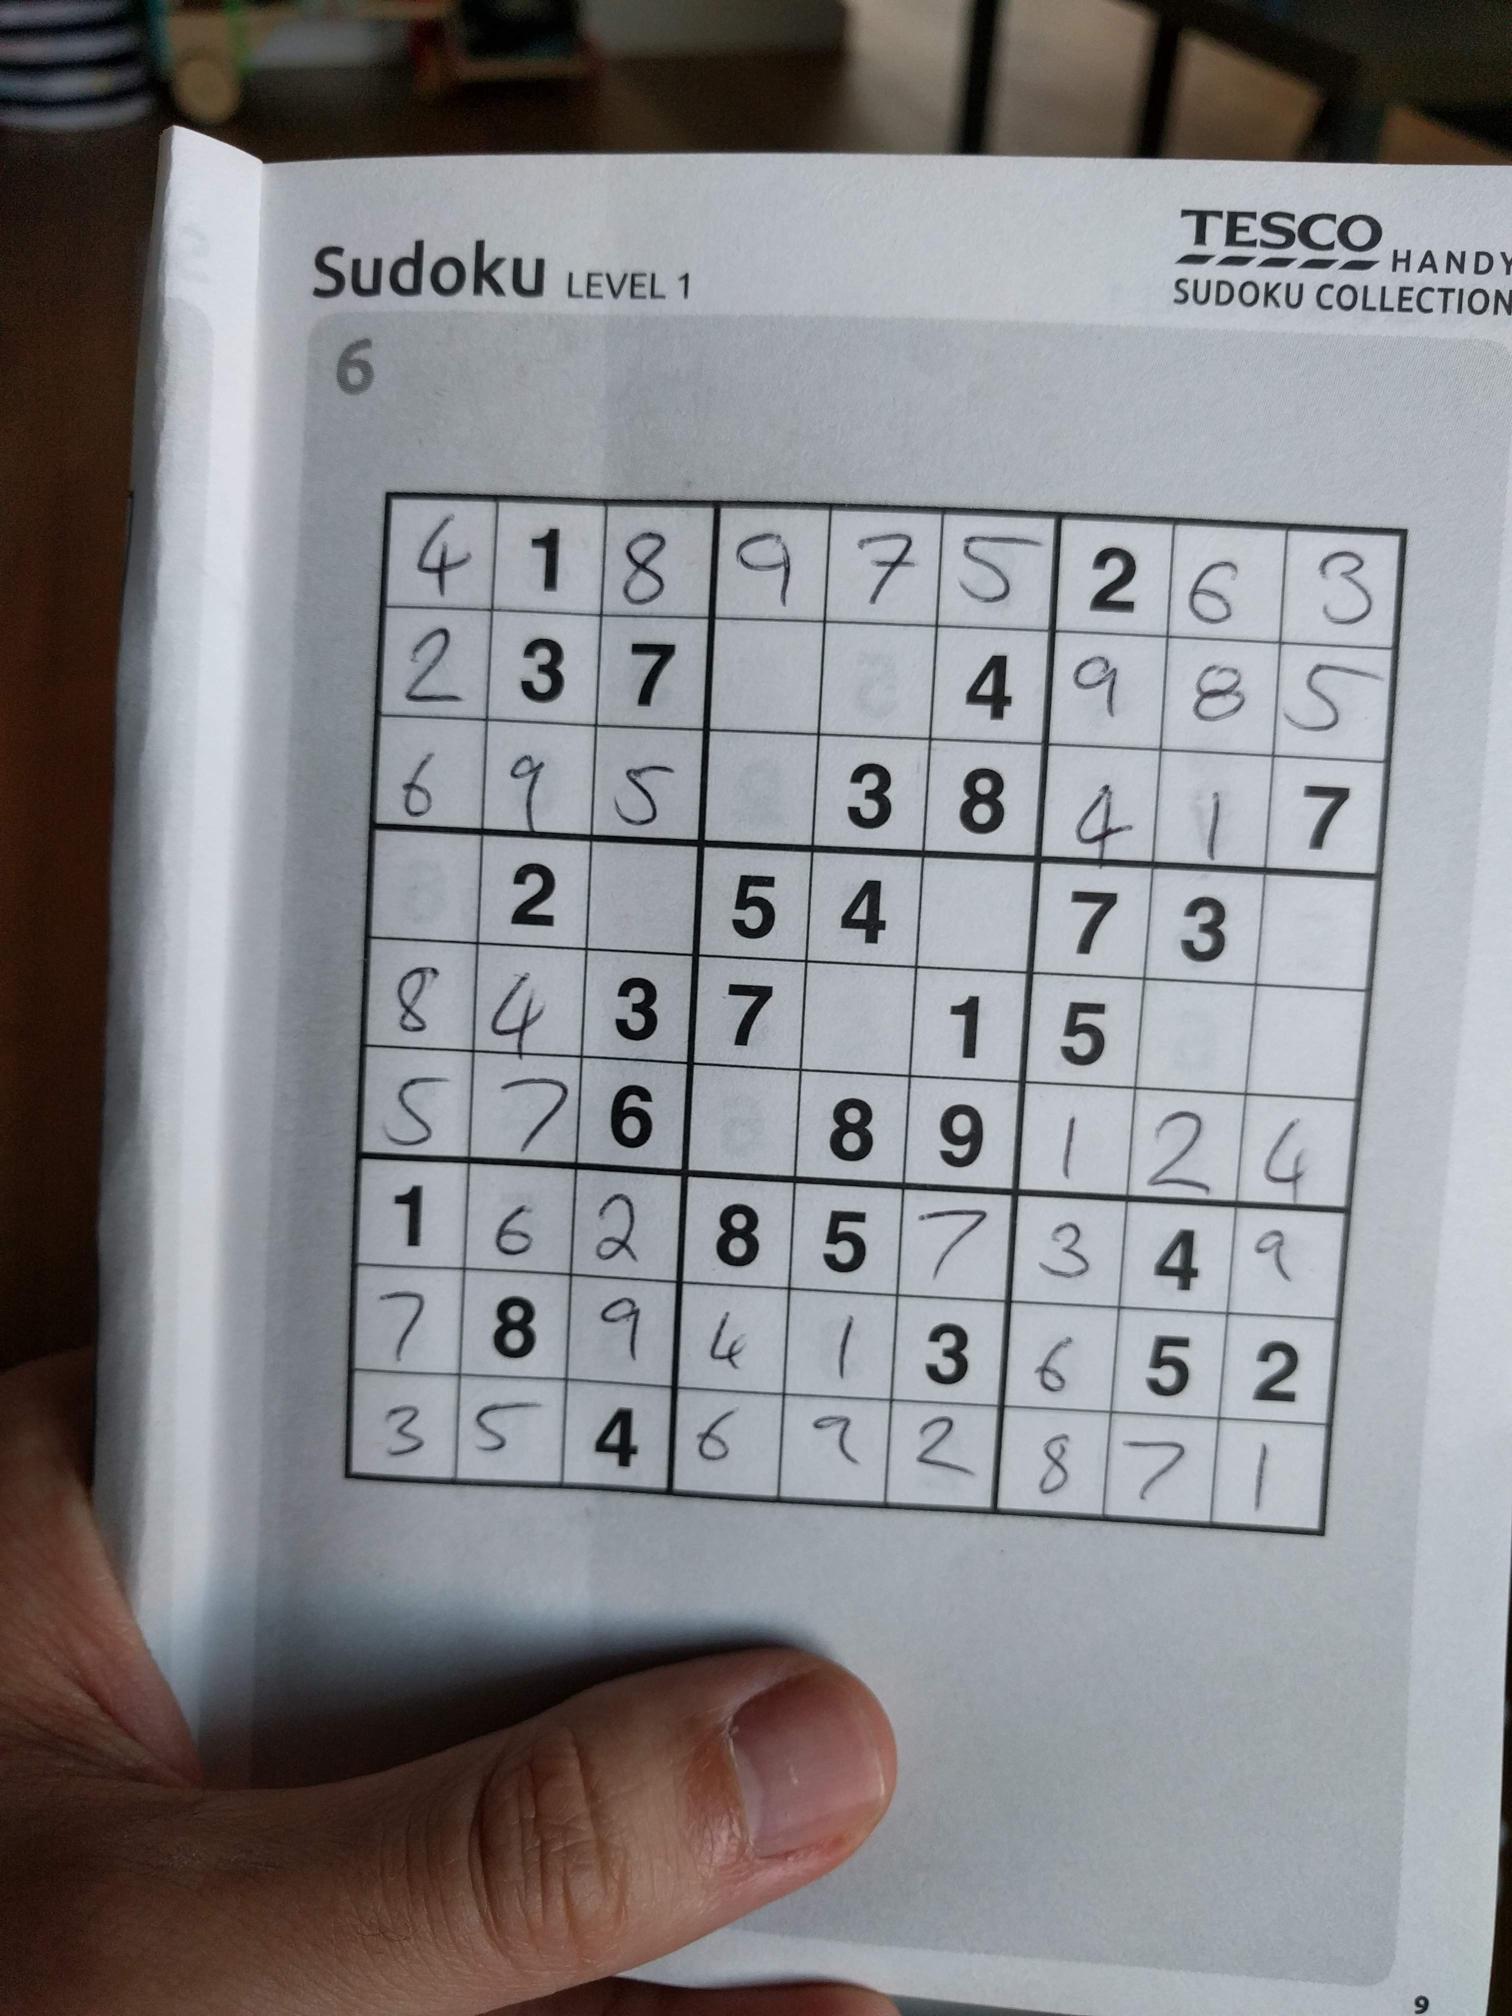 TESCO
HANDY
Sudoku LEVEL 1
SUDOKU COLLECTION
6
4 1 8 9 7 5 2 6 3
2 3 7 4 9 8 5
6 9 5 3 8 4 1 7
2 5 4 7 3
8 4 3 7 1 5
5 7 6 8 9 1 2 4
1 6 2 8 5 7 3 4 9
7 8 9 4 1 3 6 5 2
3 5 4 6 9 2 8 7 1
9